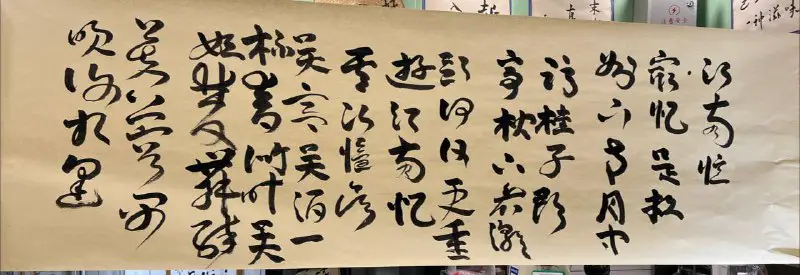 江南忆
最忆是杭
州山寺月中
寻桂子郡
亭枕上看潮
头何日更重
遊江南忆
其次憶
吴宫吴酒一
杯春竹叶吴
娃雙舞醉
芙蓉早
晚復相逢